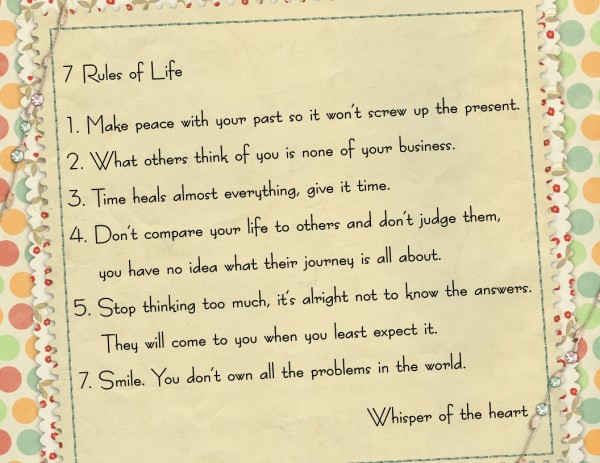 7 Rules of Life
1. Make peace with your past so it won't screw up the present.
2. What others think of you is none of your business.
3. Time heals almost everything, give it time.
4. Don't compare your life to others and don't judge them,
you have no idea what their journey is all about.
5. Stop thinking too much, it's alright not to know the answers.
They will come to you when you least expect it.
7. Smile. You don't own all the problems in the world.
Whisper of the heart